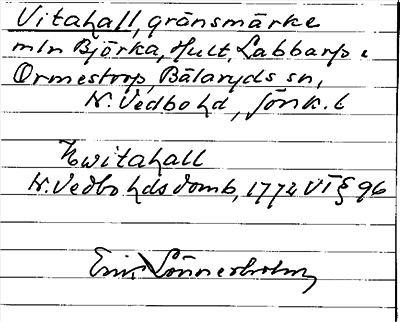 Vitahall, gränsmärke
mln Björka, Hult, Labbarp o
Ormestorp, Bälaryds sn,
N. Vedbo hd, Jönk. l
Hwitahall
N. Vedbo hds domb, 1772 VT § 96
Erik Lönnerholm